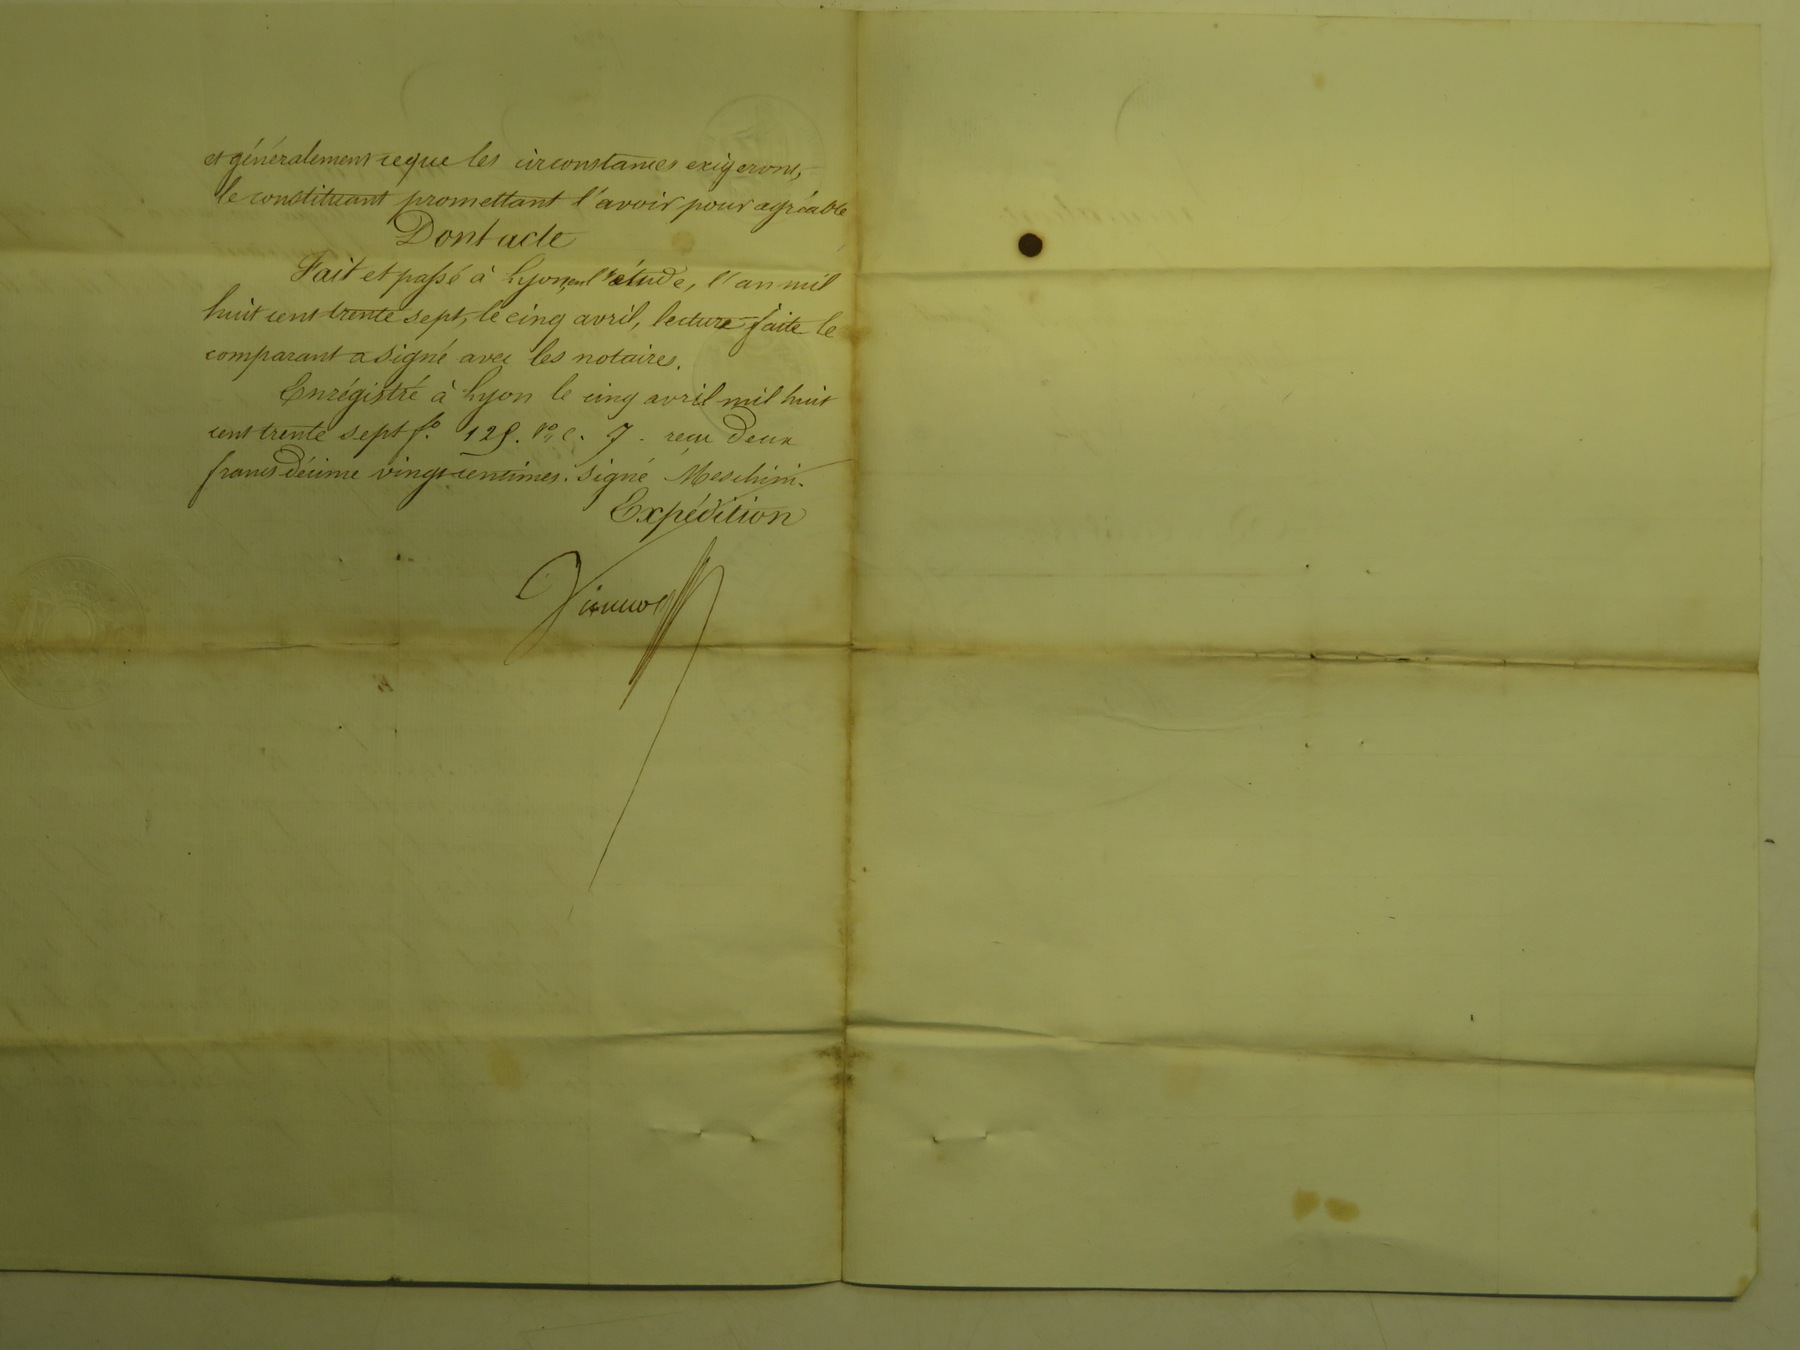 et généralement ce que les circonstances exigeront,
le constituant promettant l'avoir pour agréable
Dont acte
Fait et passé à Lyon, en l'étude, l'an mil
huit cent trente sept, le cinq avril, lecture faite le
comparant a signé avec les notaires.
Enrégistré à Lyon le cinq avril mil huit
cent trente sept f.º 125. rº, c. 7. reçu deux
francs décime vingt centimes. signé Meschini.
Expédition